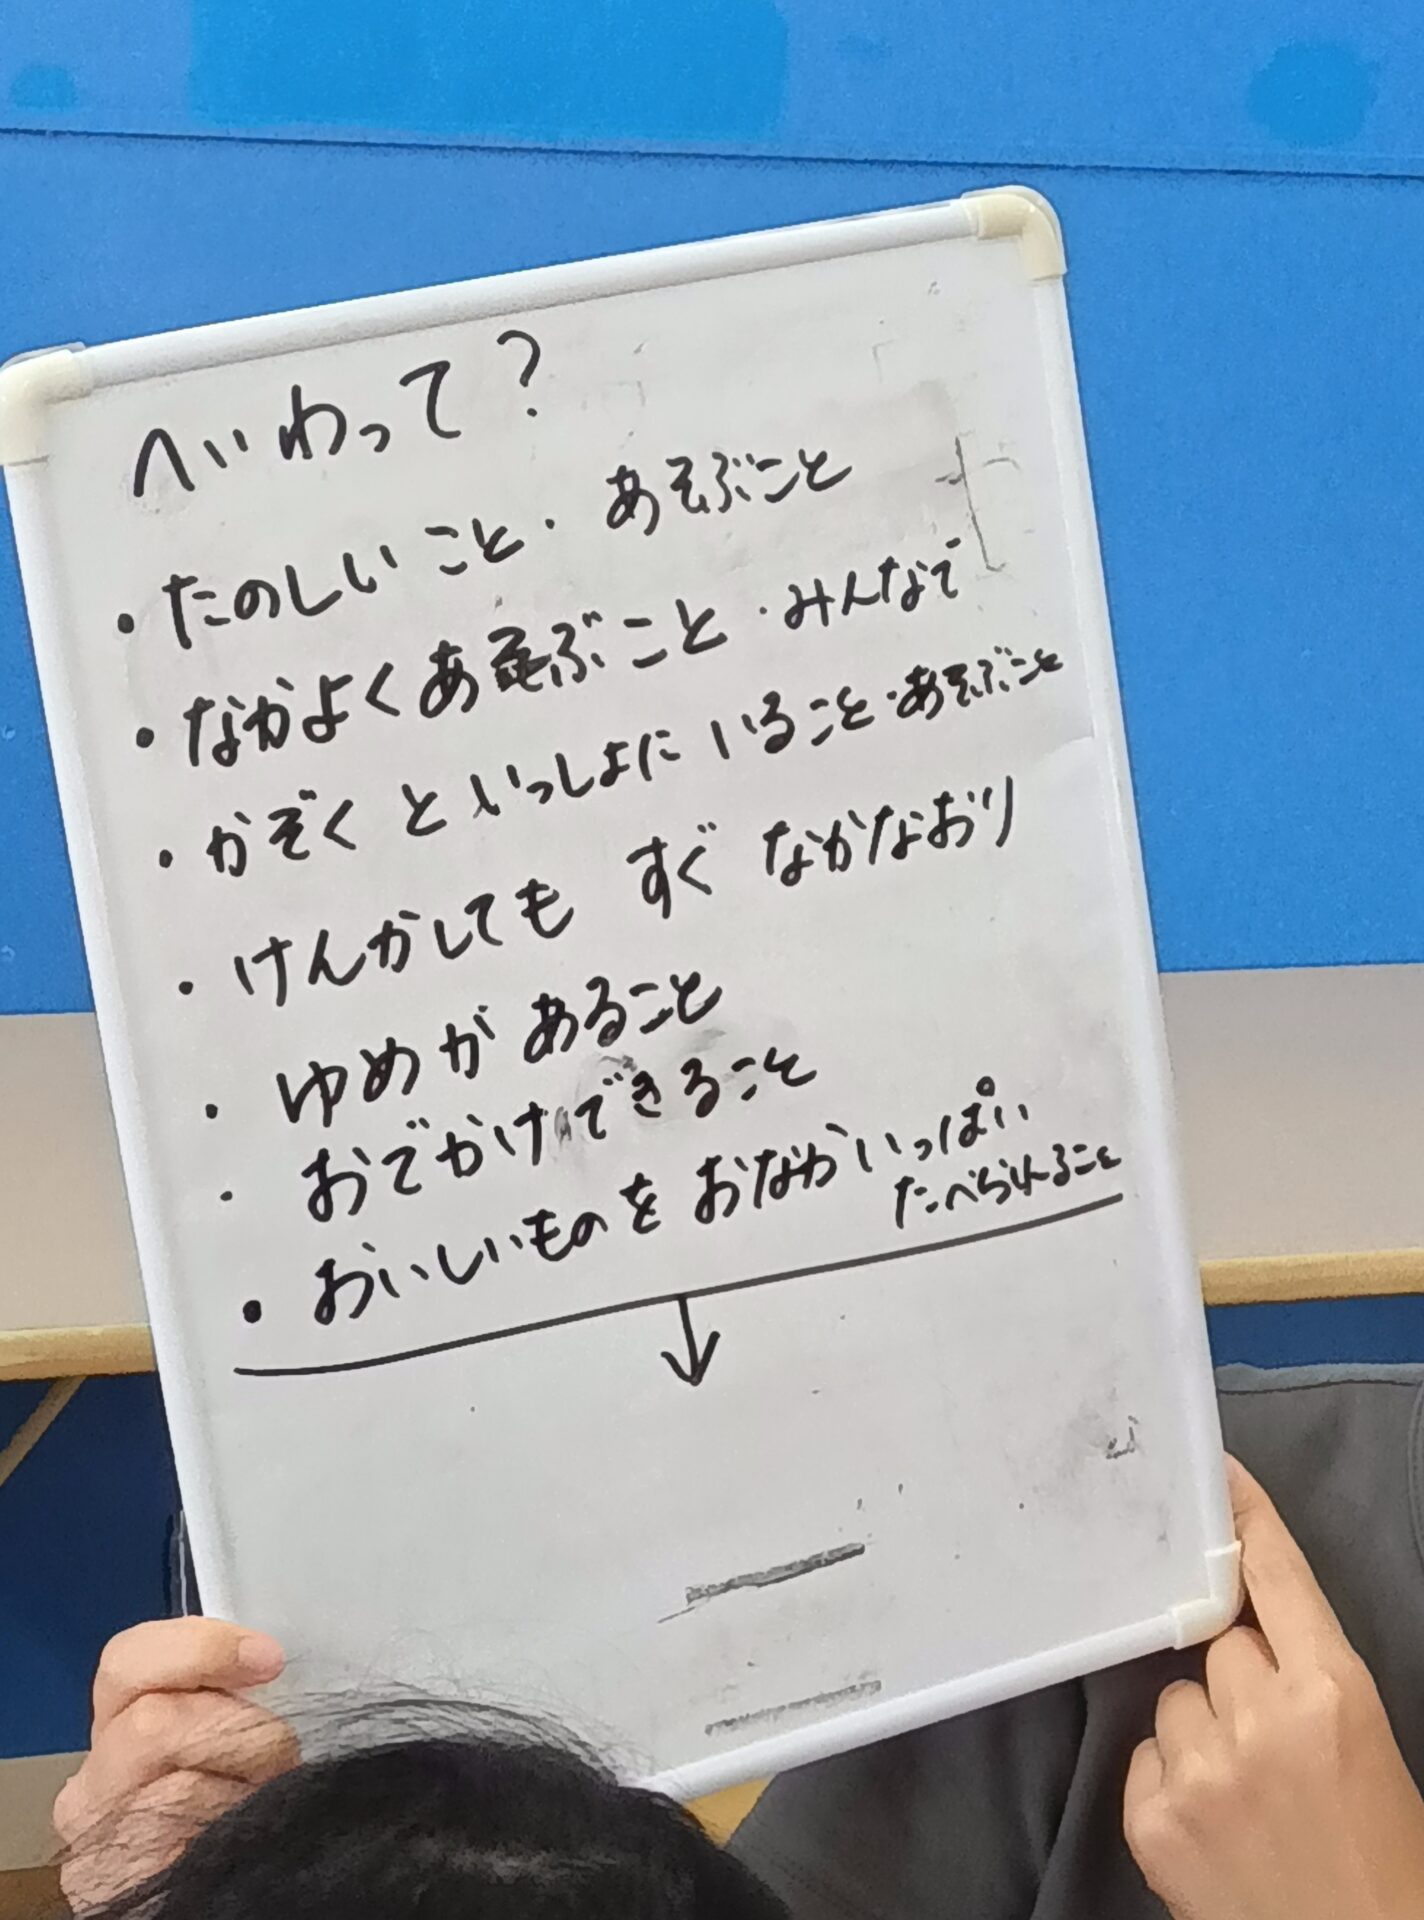 へいわって?
・たのしいこと・あそぶこと
・なかよくあそぶこと・みんなで
・かぞくといっしょにいること・あそぶこと
・けんかしてもすぐなかなおり
・ゆめがあること
・おでかけできること
・おいしいものをおなかいっぱい
たべられること
↓